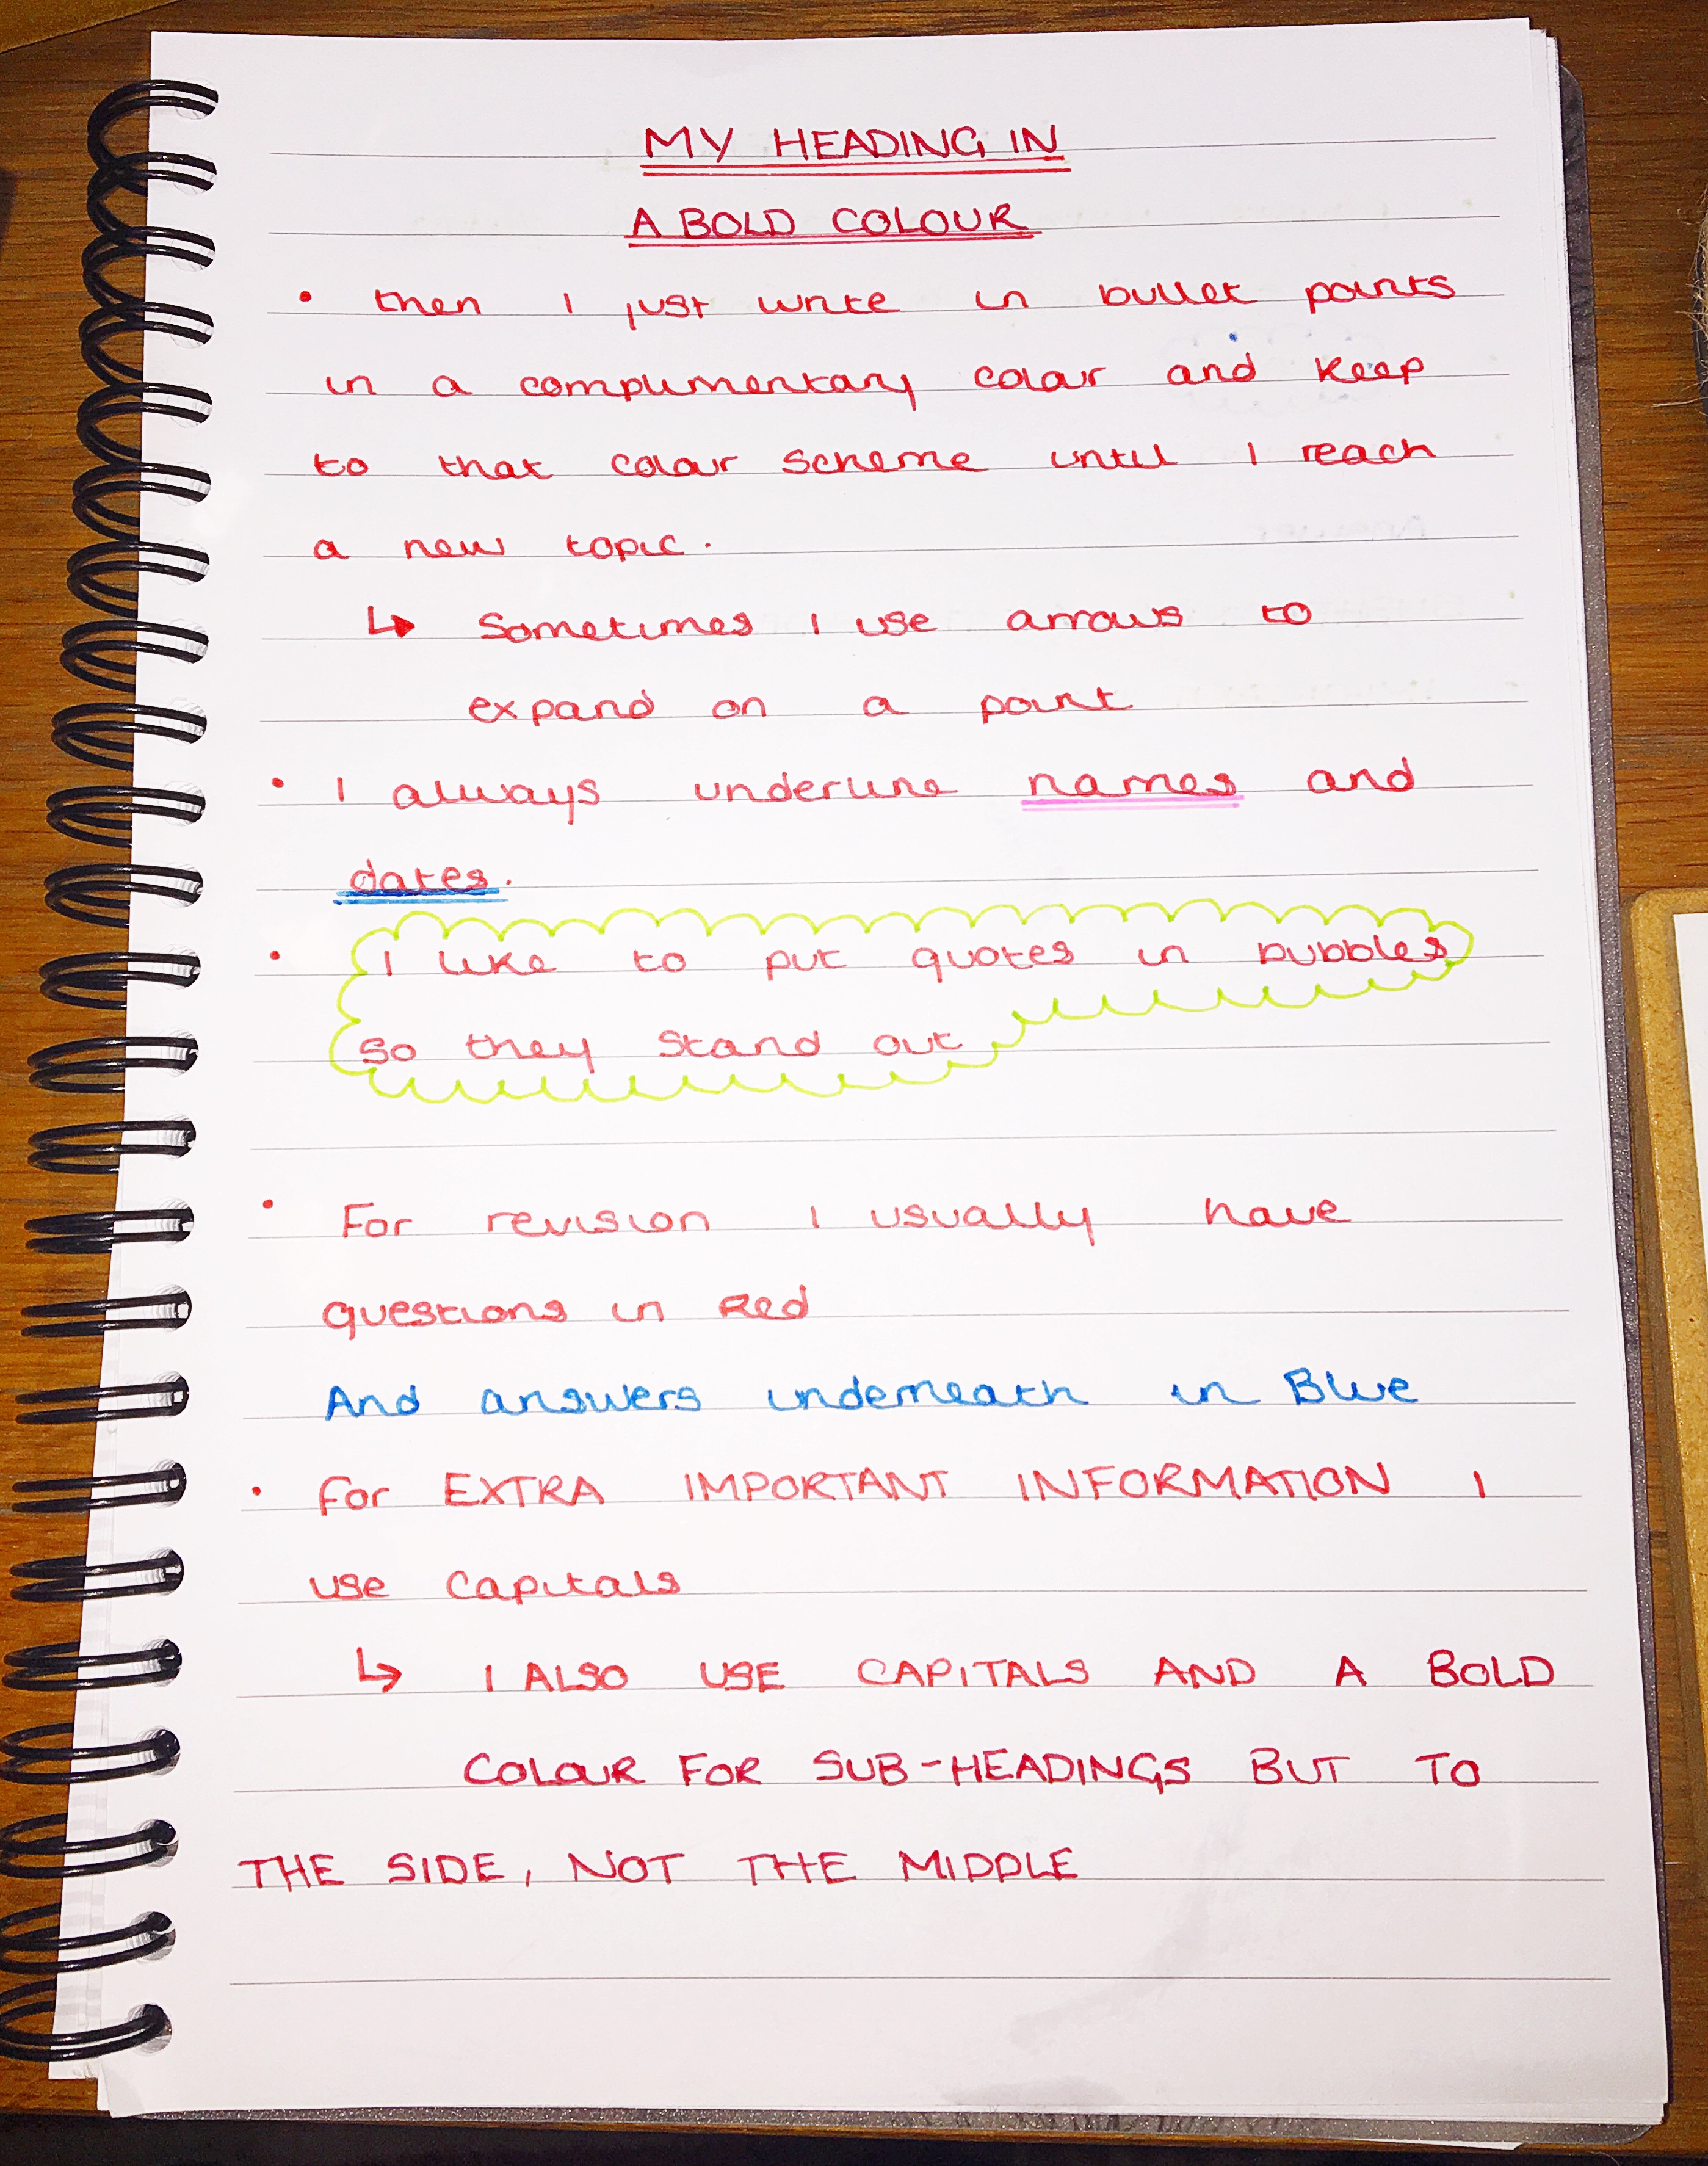 MY HEADING IN
A BOLD COLOUR
• then I just write in bullet points
in a complimentary colour and keep
to that colour scheme until I reach
a new topic.
↳ Sometimes I use arrows to
expand on a point
• I always underline names and
dates.
• I like to put quotes in bubbles
so they stand out
• For revision I usually have
questions in Red
And answers underneath in Blue
• for EXTRA IMPORTANT INFORMATION I
use capitals
↳ I ALSO USE CAPITALS AND A BOLD
COLOUR FOR SUB-HEADINGS BUT TO
THE SIDE, NOT THE MIDDLE